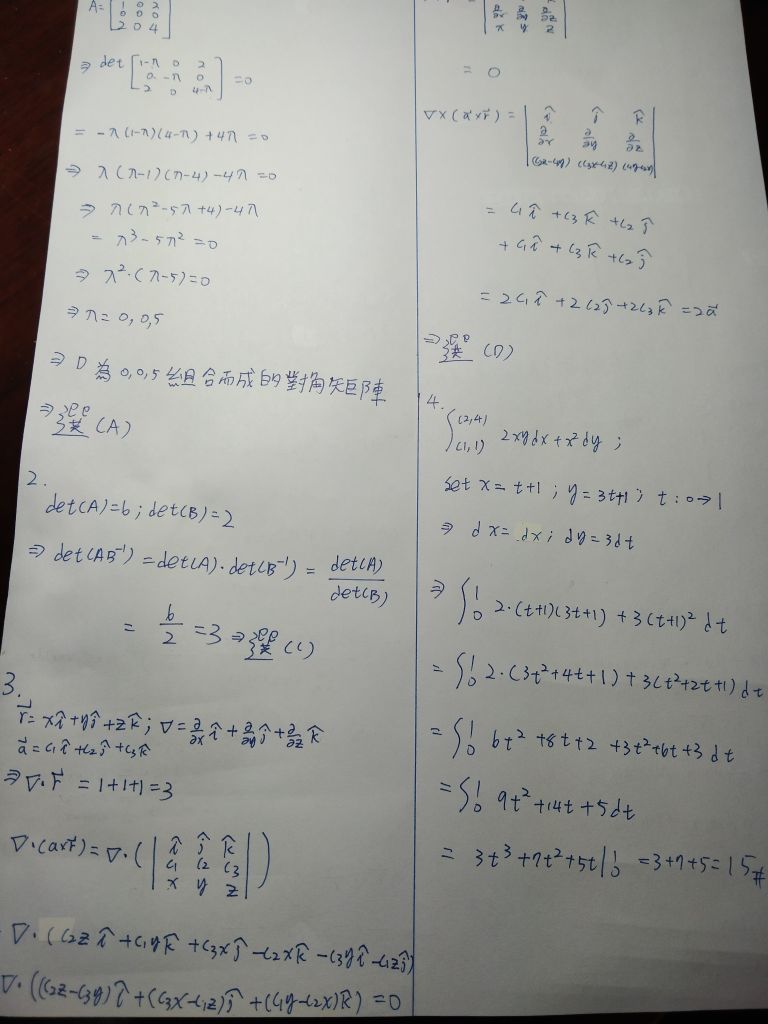 A = [1 0 2; 0 0 0; 2 0 4]
⇒ det [1-λ 0 2; 0 -λ 0; 2 0 4-λ] = 0
= -λ(1-λ)(4-λ) + 4λ = 0
⇒ λ(λ-1)(λ-4) - 4λ = 0
⇒ λ(λ²-5λ+4) - 4λ
= λ³ - 5λ² = 0
⇒ λ²·(λ-5) = 0
⇒ λ = 0, 0, 5
⇒ D 為 0,0,5 組合而成的對角矩陣
⇒ 選 (A)
2.
det(A)=6; det(B)=2
⇒ det(AB⁻¹) = det(A)·det(B⁻¹) = det(A)/det(B)
= 6/2 = 3 ⇒ 選 (C)
3.
r⃗ = xî+yĵ+zk̂; ∇ = ∂/∂x î + ∂/∂y ĵ + ∂/∂z k̂
a⃗ = c₁î + c₂ĵ + c₃k̂
⇒ ∇·r⃗ = 1+1+1 = 3
∇·(a×r⃗) = ∇·(|î ĵ k̂; c₁ c₂ c₃; x y z|)
∇·(c₂zî + c₁yk̂ + c₃xĵ - c₂xk̂ - c₃yî - c₁zĵ)
∇·((c₂z-c₃y)î + (c₃x-c₁z)ĵ + (c₁y-c₂x)k̂) = 0
|∂/∂x ∂/∂y ∂/∂z; x y z|
= 0
∇×(a⃗×r⃗) = |î ĵ k̂; ∂/∂x ∂/∂y ∂/∂z; (c₂z-c₃y) (c₃x-c₁z) (c₁y-c₂x)|
= c₁î + c₃k̂ + c₂ĵ
+ c₁î + c₃k̂ + c₂ĵ
= 2c₁î + 2c₂ĵ + 2c₃k̂ = 2a⃗
⇒ 選 (D)
4.
∫₍₁,₁₎^(2,4) 2xydx + x²dy ;
set x = t+1 ; y = 3t+1 ; t : 0→1
⇒ dx = dx ; dy = 3dt
⇒ ∫₀¹ 2·(t+1)(3t+1) + 3(t+1)² dt
= ∫₀¹ 2·(3t²+4t+1) + 3(t²+2t+1) dt
= ∫₀¹ 6t²+8t+2 + 3t²+6t+3 dt
= ∫₀¹ 9t²+14t+5dt
= 3t³+7t²+5t|₀¹ = 3+7+5 = 15#